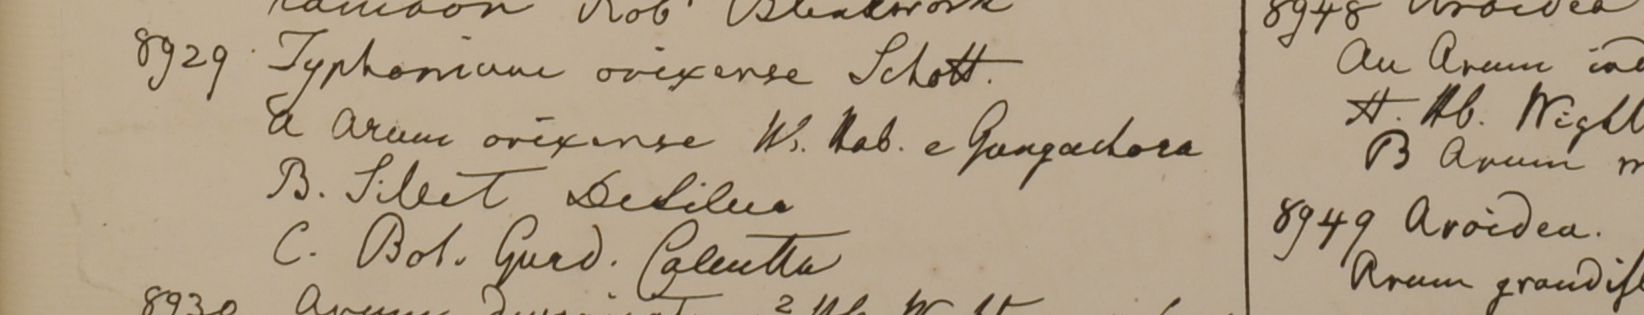 8929 Typhonium orixense Schott.
a Arum orixense W. Hab. e Gongachora
B. Sillet DeSilva
C. Bot. Gard. Calcutta
8930 Arum
8948 Aroidea
An Arum
H. Hb. Wight
B Arum
8949 Aroidea.
Arum grandifl